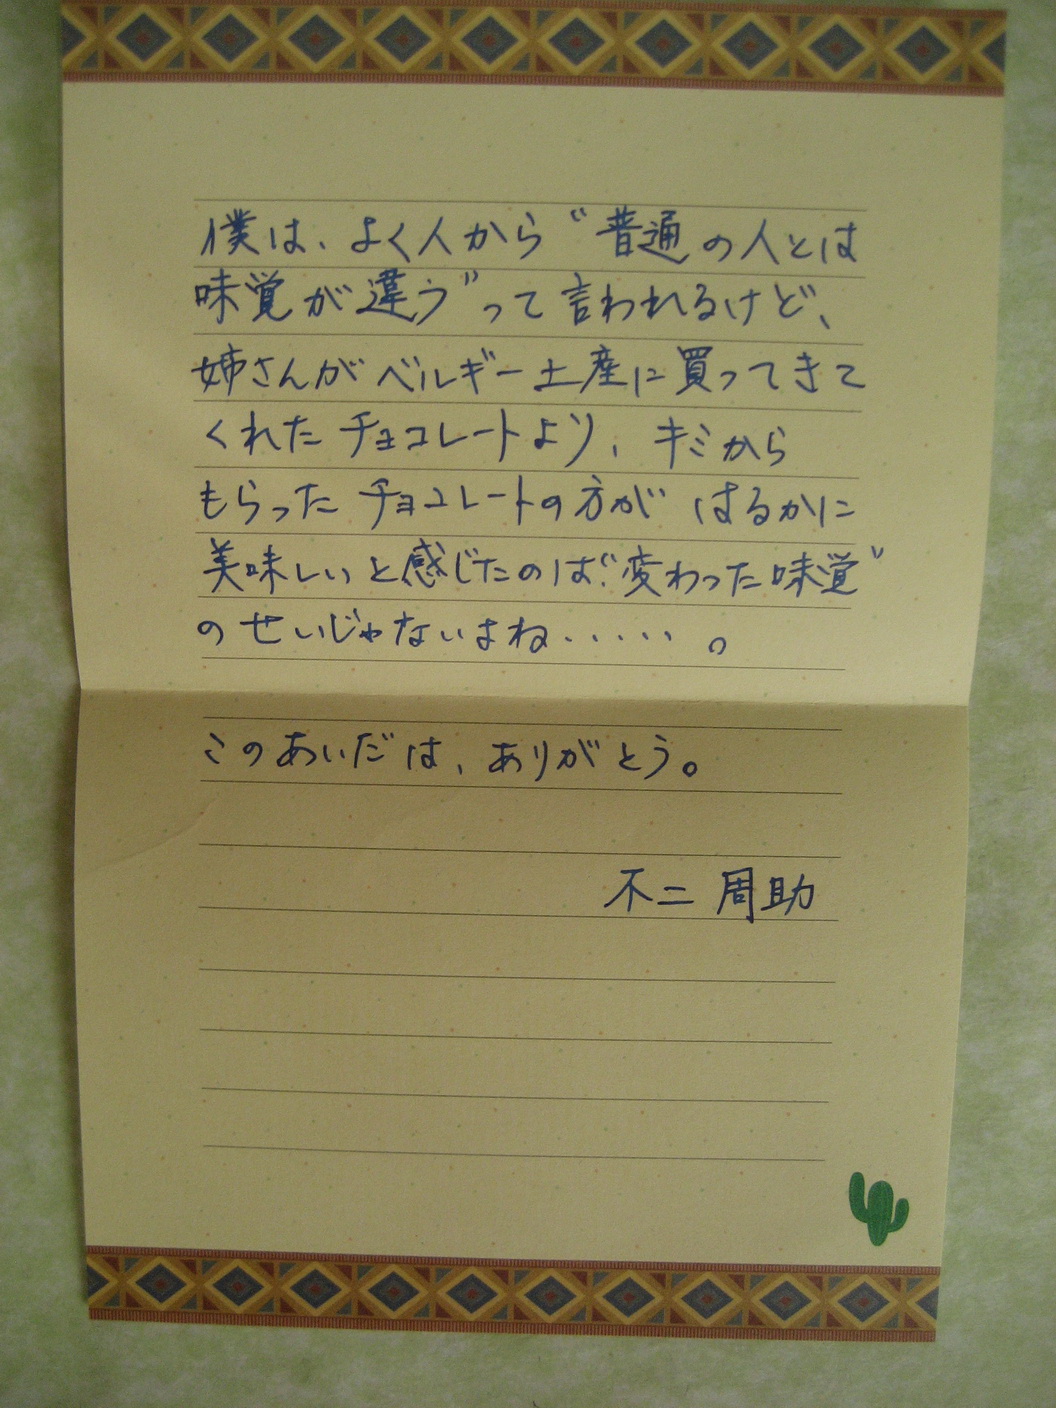 僕は、よく人から“普通の人とは
味覚が違う”って言われるけど、
姉さんがベルギー土産に買ってきて
くれたチョコレートより、キミから
もらったチョコレートの方が はるかに
美味しいと感じたのは“変わった味覚”
のせいじゃないよね‥‥‥。
このあいだは、ありがとう。
不二 周助